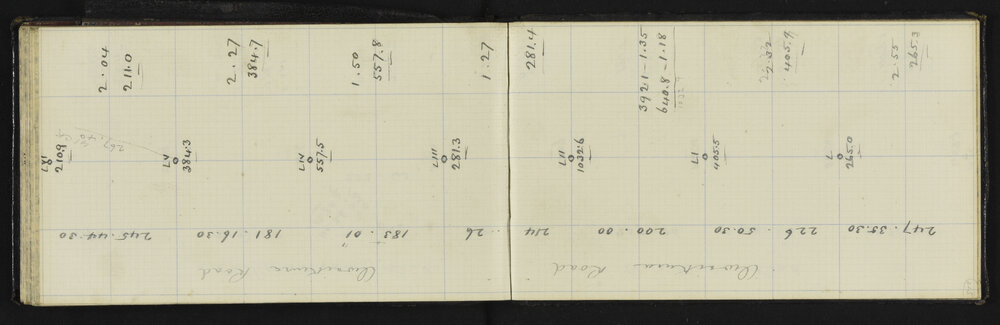 2.04
211.0
2.27
384.7
1.50
557.8
1.27
281.4
392.1 - 1.35
640.8 - 1.18
2.32
405.9
2.55
265.3
210.9
LV
384.3
LIV
557.5
LIII
281.3
LII
1032.6
LI
405.5
L
265.0
245.44.30
181.16.30
183.01
214 . 26
200.00
226 . 50.30
247.35.30
Road
Road